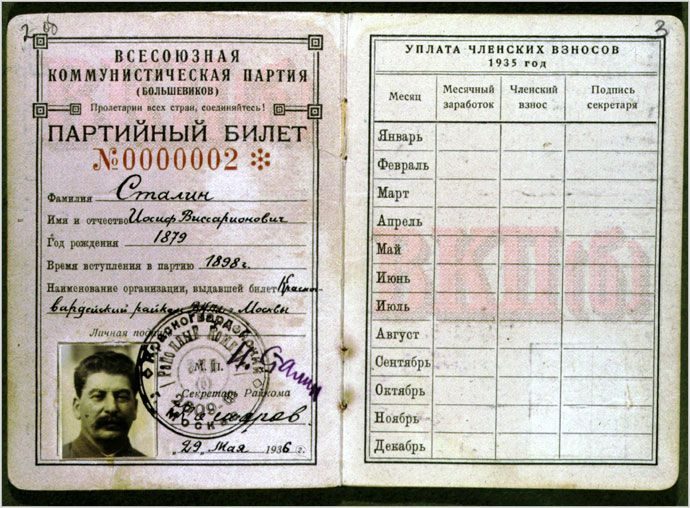 ВСЕСОЮЗНАЯ
КОММУНИСТИЧЕСКАЯ ПАРТИЯ
(БОЛЬШЕВИКОВ)
Пролетарии всех стран, соединяйтесь!
ПАРТИЙНЫЙ БИЛЕТ
№0000002
Фамилия Сталин
Имя и отчество Иосиф Виссарионович
Год рождения 1879
Время вступления в партию 1898 г.
Наименование организации, выдавшей билет Красно-
гвардейский райком Москвы
Личная
И. Сталин
М. П.
Секретарь Райкома
29 Мая 1936 г.
МОСКВА
3
УПЛАТА ЧЛЕНСКИХ ВЗНОСОВ
1935 год
Месяц Месячный заработок Членский взнос Подпись секретаря
Январь
Февраль
Март
Апрель
Май
Июнь
Июль
Август
Сентябрь
Октябрь
Ноябрь
Декабрь
ВКП(б)